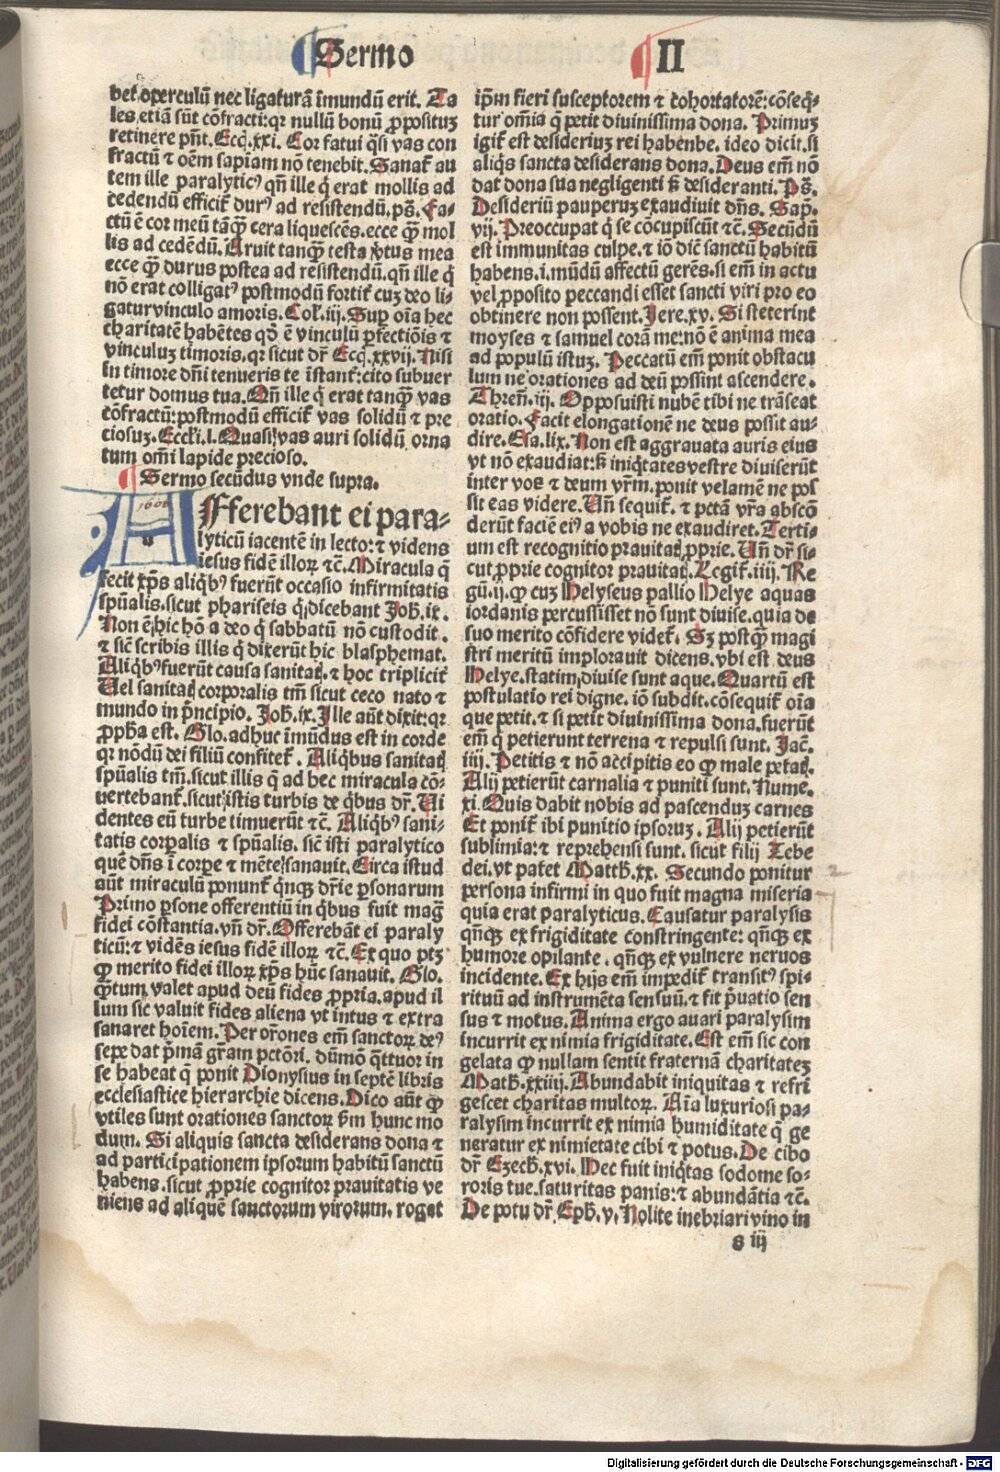 Sermo II
bet operculū nec ligaturā īmundū erit. Ta
les etiā sūt cōfracti: qr nullū bonū ꝓposituꝫ
retinere pn̄t. Ecq̄. xxi. Cor fatui q̄si vas con
fractū ⁊ oēm sapīam nō tenebit. Sanat̄ au
tem ille paralyticꝰ qn̄ ille q̄ erat mollis ad
cedendū efficit̄ durꝰ ad resistendū. pō. Fa-
ctū ē cor meū tāꝙ̄ cera liquescēs. ecce ꝙ̄ mol
lis ad cedēdū. Aruit tanꝙ̄ testa v̄tus mea
ecce ꝙ̄ durus postea ad resistendū. qn̄ ille q̄
nō erat colligatꝰ postmodū fortit̄ cuꝫ deo li-
gatur vinculo amoris. Col̄. iij. Suꝑ oīa hec
charitatē habētes qd̄ ē vinculū ꝑfectiōis ⁊
vinculuꝫ timoris. qr sicut dr̄ Ecq̄. xxvij. Nisi
in timore dn̄i tenueris te īstant̄: cito subuer
tetur domus tua. Qn̄ ille q̄ erat tanꝙ̄ vas
cōfractū: postmodū efficit̄ vas solidū ⁊ pre
ciosuꝫ. Eccl̄i. l. Quasi vas auri solidū orna
tum om̄i lapide precioso.
Sermo secūdus vnde supra.
1608
AFferebant ei para-
lyticū iacentē in lecto: ⁊ videns
iesus fidē illoꝝ ⁊c̄. Miracula q̄
fecit xp̄s aliq̄bꝰ fuerūt occasio infirmitatis
spūalis. sicut phariseis q̄ dicebant Joh̄. ix.
Non ē hic hō a deo q̄ sabbatū nō custodit.
⁊ sic̄ scribis illis q̄ dixerūt hic blasphemat.
Aliq̄bꝰ fuerūt causa sanitaꝭ. ⁊ hoc triplicit̄
Uel sanitaꝭ corporalis tm̄ sicut ceco nato ⁊
mundo in p̄ncipio. Joh̄. ix. Ille aūt dixit: qr
ꝓph̄a est. Glo. adhuc īmūdus est in corde
qr nōdū dei filiū confitet̄. Aliq̄bus sanitaꝭ
spūalis tm̄. sicut illis q̄ ad hec miracula cō-
uertebant̄. sicut istis turbis de q̄bus dr̄. Ui
dentes eū turbe timuerūt ⁊c̄. Aliq̄bꝰ sani-
tatis corꝑalis ⁊ spūalis. sic̄ isti paralytico
quē dn̄s ī corꝑe ⁊ mēte sanauit. Circa istud
aūt miraculū ponunt̄ q̄nqꝫ dr̄ie ꝑsonarum
Primo ꝑsone offerentiū in q̄bus fuit maḡ
fidei cōstantia. vn̄ dr̄. Offerebāt ei paraly
ticū: ⁊ vidēs iesus fidē illoꝝ ⁊c̄. Ex quo ptꝫ
ꝙ merito fidei illoꝝ xp̄s hūc sanauit. Glo.
ꝙ̄tum valet apud deū fides ꝓpria. apud il
lum sic valuit fides aliena vt intus ⁊ extra
sanaret hoīem. Per or̄ones em̄ sanctoꝝ deꝰ
sepe dat p̄mā gr̄am pctōri. dūmō q̄ttuor in
se habeat q̄ ponit Dionysius in septē libris
ecclesiastice hierarchie dicens. Dico aūt ꝙ
vtiles sunt orationes sanctoꝝ ẜm hunc mo
dum. Si aliquis sancta desiderans dona ⁊
ad participationem ipsorum habitū sanctū
habens. sicut ꝓprie cognitor prauitatis ve
niens ad aliquē sanctorum virorum. rogat
ip̄m fieri susceptorem ⁊ cohortatorē: cōseq̄-
tur om̄ia q̄ petit diuinissima dona. Primuꝫ
igit̄ est desideriuꝫ rei habende. ideo dicit. si
aliq̄s sancta desiderans dona. Deus em̄ nō
dat dona sua negligenti sꝫ desideranti. Pō.
Desideriū pauperuꝫ exaudiuit dn̄s. Sap̄.
vij. Preoccupat q̄ se cōcupiscūt ⁊c̄. Secūdū
est immunitas culpe. ⁊ iō dic̄ sanctū habitū
habens. i. mūdū affectū gerēs. si em̄ in actu
vel ꝓposito peccandi esset sancti viri pro eo
obtinere non possent. Jere. xv. Si steterint
moyses ⁊ samuel corā me: nō ē anima mea
ad populū istuꝫ. Peccatū em̄ ponit obstacu
lum ne orationes ad deū possint ascendere.
Thren̄. iij. Opposuisti nubē tibi ne trāseat
oratio. Facit elongationē ne deus possit au-
dire. Esa. lix. Non est aggrauata auris eius
vt nō exaudiat: sꝫ iniq̄tates vestre diuiserūt
inter vos ⁊ deum vr̄m. ponit velamē ne pos
sit eas videre. Un̄ sequit̄. ⁊ pctā vr̄a abscō
derūt faciē eiꝰ a vobis ne exaudiret. Terti-
um est recognitio prauitaꝭ ꝓprie. Un̄ dr̄ si-
cut ꝓprie cognitor prauitaꝭ. Legit̄. iiij. Re
gū. ij. ꝙ cuꝫ Helyseus pallio Helye aquas
iordanis percussisset nō sunt diuise. quia de
suo merito cōfidere videt̄. Sꝫ postꝙ̄ magi
stri meritū implorauit dicens. vbi est deus
Helye. statim diuise sunt aque. Quartū est
postulatio rei digne. iō subdit. cōsequit̄ oīa
que petit. ⁊ si petit diuinissima dona. fuerūt
em̄ q̄ petierunt terrena ⁊ repulsi sunt. Jac̄.
iiij. Petitis ⁊ nō accipitis eo ꝙ male petaꝭ.
Alij petierūt carnalia ⁊ puniti sunt. Nume.
xi. Quis dabit nobis ad pascenduꝫ carnes
Et ponit̄ ibi punitio ipsoruꝫ. Alij petierūt
sublimia: ⁊ reprehensi sunt. sicut filij Zebe
dei. vt patet Matth̄. xx. Secundo ponitur
persona infirmi in quo fuit magna miseria
quia erat paralyticus. Causatur paralysis
qn̄qꝫ ex frigiditate constringente: qn̄qꝫ ex
humore opilante. qn̄qꝫ ex vulnere neruos
incidente. Ex hijs em̄ impedit̄ transitꝰ spi-
rituū ad instrumēta sensuū. ⁊ fit p̄uatio sen
sus ⁊ motus. Anima ergo auari paralysim
incurrit ex nimia frigiditate. Est em̄ sic con
gelata ꝙ nullam sentit fraternā charitateꝫ
Math̄. xxiiij. Abundabit iniquitas ⁊ refri
gescet charitas multoꝝ. Aīa luxuriosi pa-
ralysim incurrit ex nimia humiditate q̄ ge
neratur ex nimietate cibi ⁊ potus. De cibo
dr̄ Ezech̄. xvi. Hec fuit iniq̄tas sodome so-
roris tue. saturitas panis: ⁊ abundātia ⁊c̄.
De potu dr̄. Eph̄. v. Nolite inebriari vino in
s iij
Digitalisierung gefördert durch die Deutsche Forschungsgemeinschaft - DFG